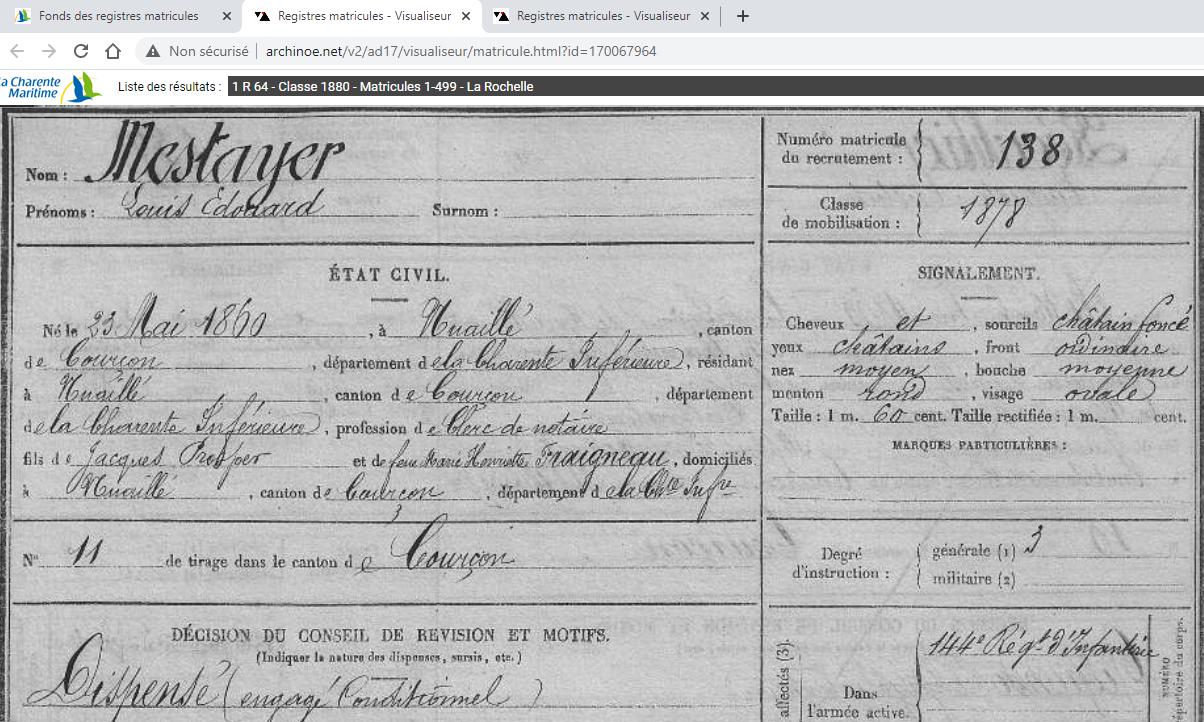 Fonds des registres matricules
Registres matricules - Visualiseur
Registres matricules - Visualiseur
Non sécurisé
archinoe.net/v2/ad17/visualiseur/matricule.html?id=170067964
La Charente
Maritime
Liste des résultats :
1 R 64 - Classe 1880 - Matricules 1-499 - La Rochelle
Nom : Mestayer
Prénoms : Louis Edouard Surnom :
Numéro matricule
du recrutement : 138
Classe
de mobilisation : 1878
ÉTAT CIVIL.
Né le 23 Mai 1860, à Nuaillé, canton
de Courçon, département de la Charente Inférieure, résidant
à Nuaillé, canton de Courçon, département
de la Charente Inférieure, profession de Clerc de notaire
fils de Jacques Prosper et de feue Marie Henriette Fraigneau, domiciliés
à Nuaillé, canton de Courçon, département de la Chte Infre
SIGNALEMENT.
Cheveux et, sourcils châtain foncé
yeux châtains, front ordinaire
nez moyen, bouche moyenne
menton rond, visage ovale
Taille : 1 m. 60 cent. Taille rectifiée : 1 m. cent.
MARQUES PARTICULIÈRES :
N° 11 de tirage dans le canton de Courçon
Degré
d'instruction :
générale (1) 3
militaire (2)
DÉCISION DU CONSEIL DE REVISION ET MOTIFS.
(Indiquer la nature des dispenses, sursis, etc.)
Dispensé (engagé Conditionnel)
affectés (3).
Dans
l'armée active.
144e Régt d'Infanterie
NUMÉRO
répertoire du corps.